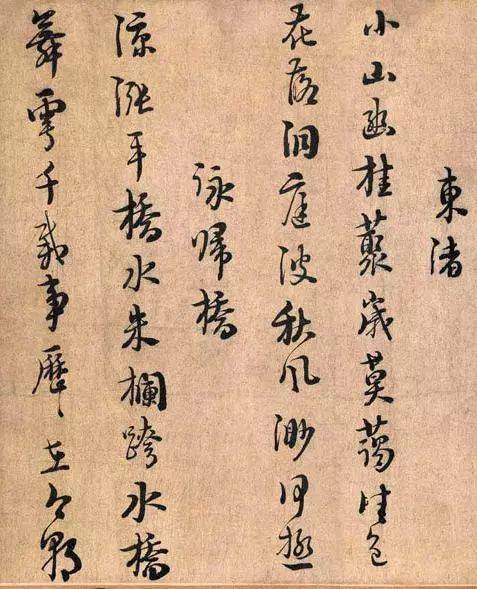 東渚
小山幽桂叢歲莫藹佳色
花落洞庭波秋風渺何極
詠歸橋
漲平橋水朱欄跨水橋
舞雩千載事歷〻在今朝